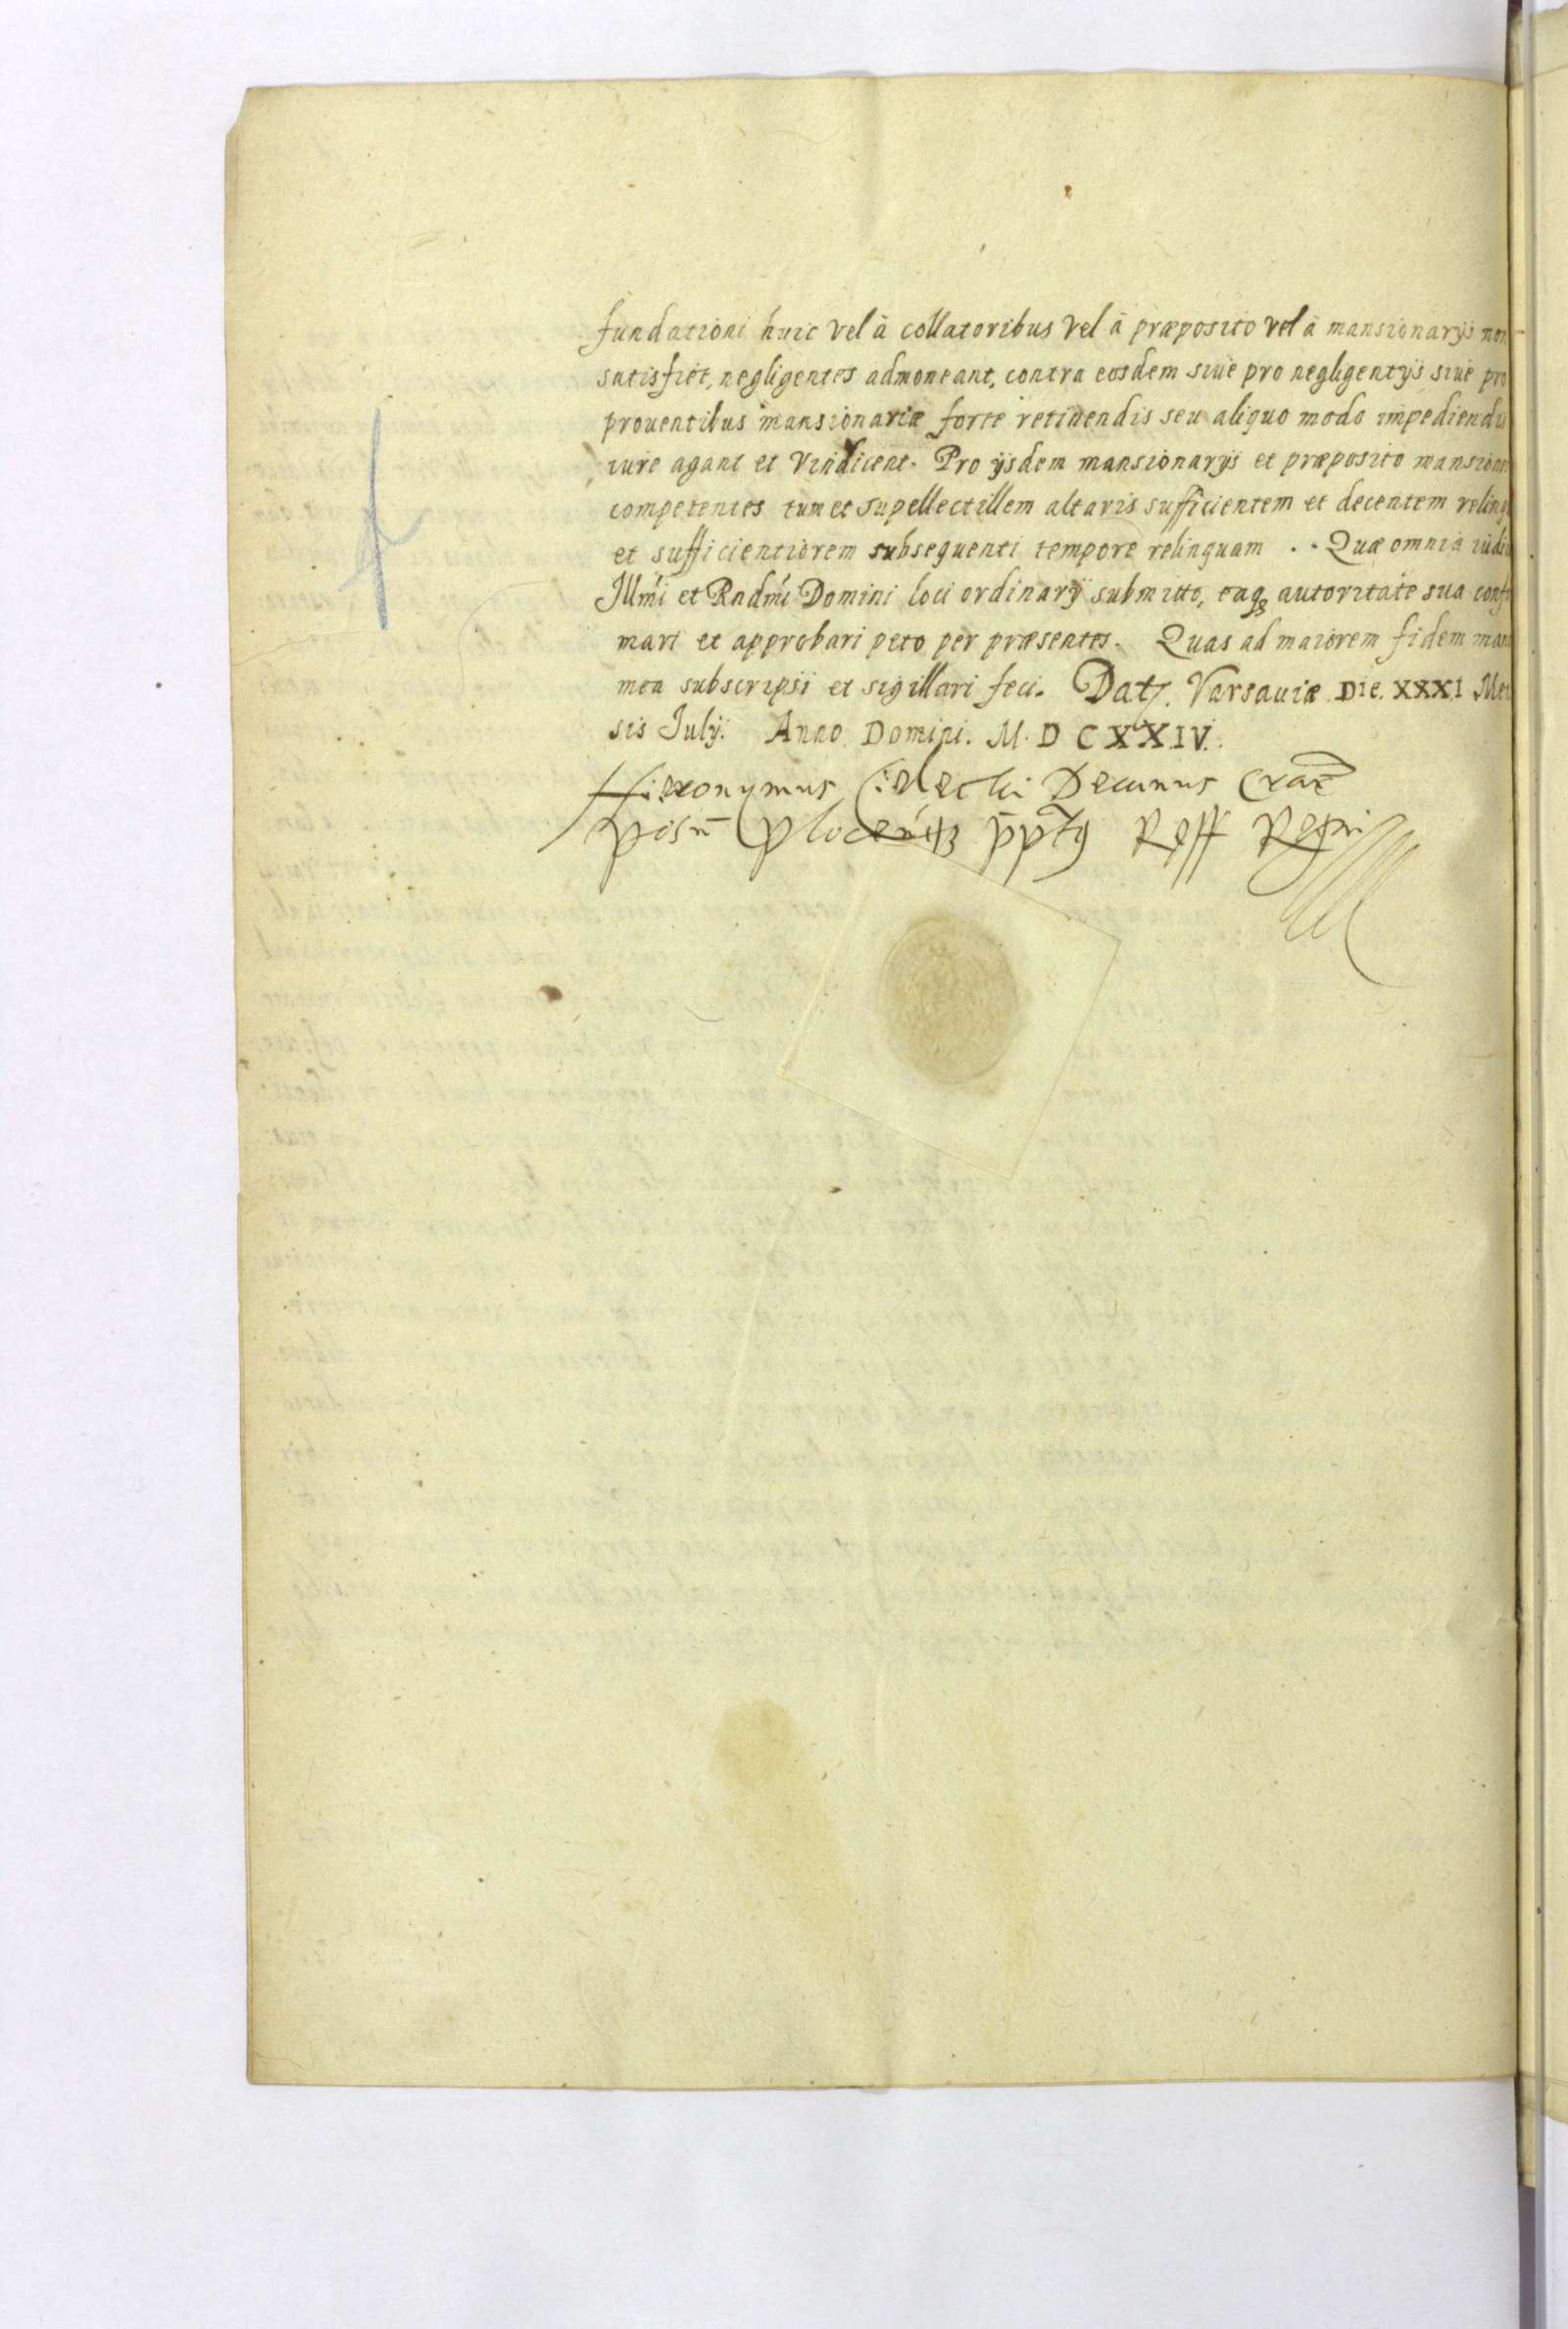 fundationi huic vel à collatoribus vel à præposito vel à mansionarijs non
satisfiet, negligentes admoneant, contra eosdem siuè pro negligentijs siuè pro
prouentibus mansionariæ forte retinendis seu aliquo modo impediendis
iure agant et Vindicent. Pro ijsdem mansionarijs et præposito mansion
competentes tum et supellectillem altaris sufficientem et decentem relinq
et sufficientiorem subsequenti tempore relinquam .. Quæ omnia iudi
Illmi et Rndmi Domini loci ordinarij submitto, eaq3 autoritate sua confr
mari et approbari peto per præsentes. Quas ad maiorem fidem man
mea subscripsi et sigillari feci. Dat. Varsauiæ DIE. XXXI Me
sis Julij. Anno Domini. M. D C X X IV.
Hieronymus Cielecki Decanus Crac
posn Plocen Reff Regni